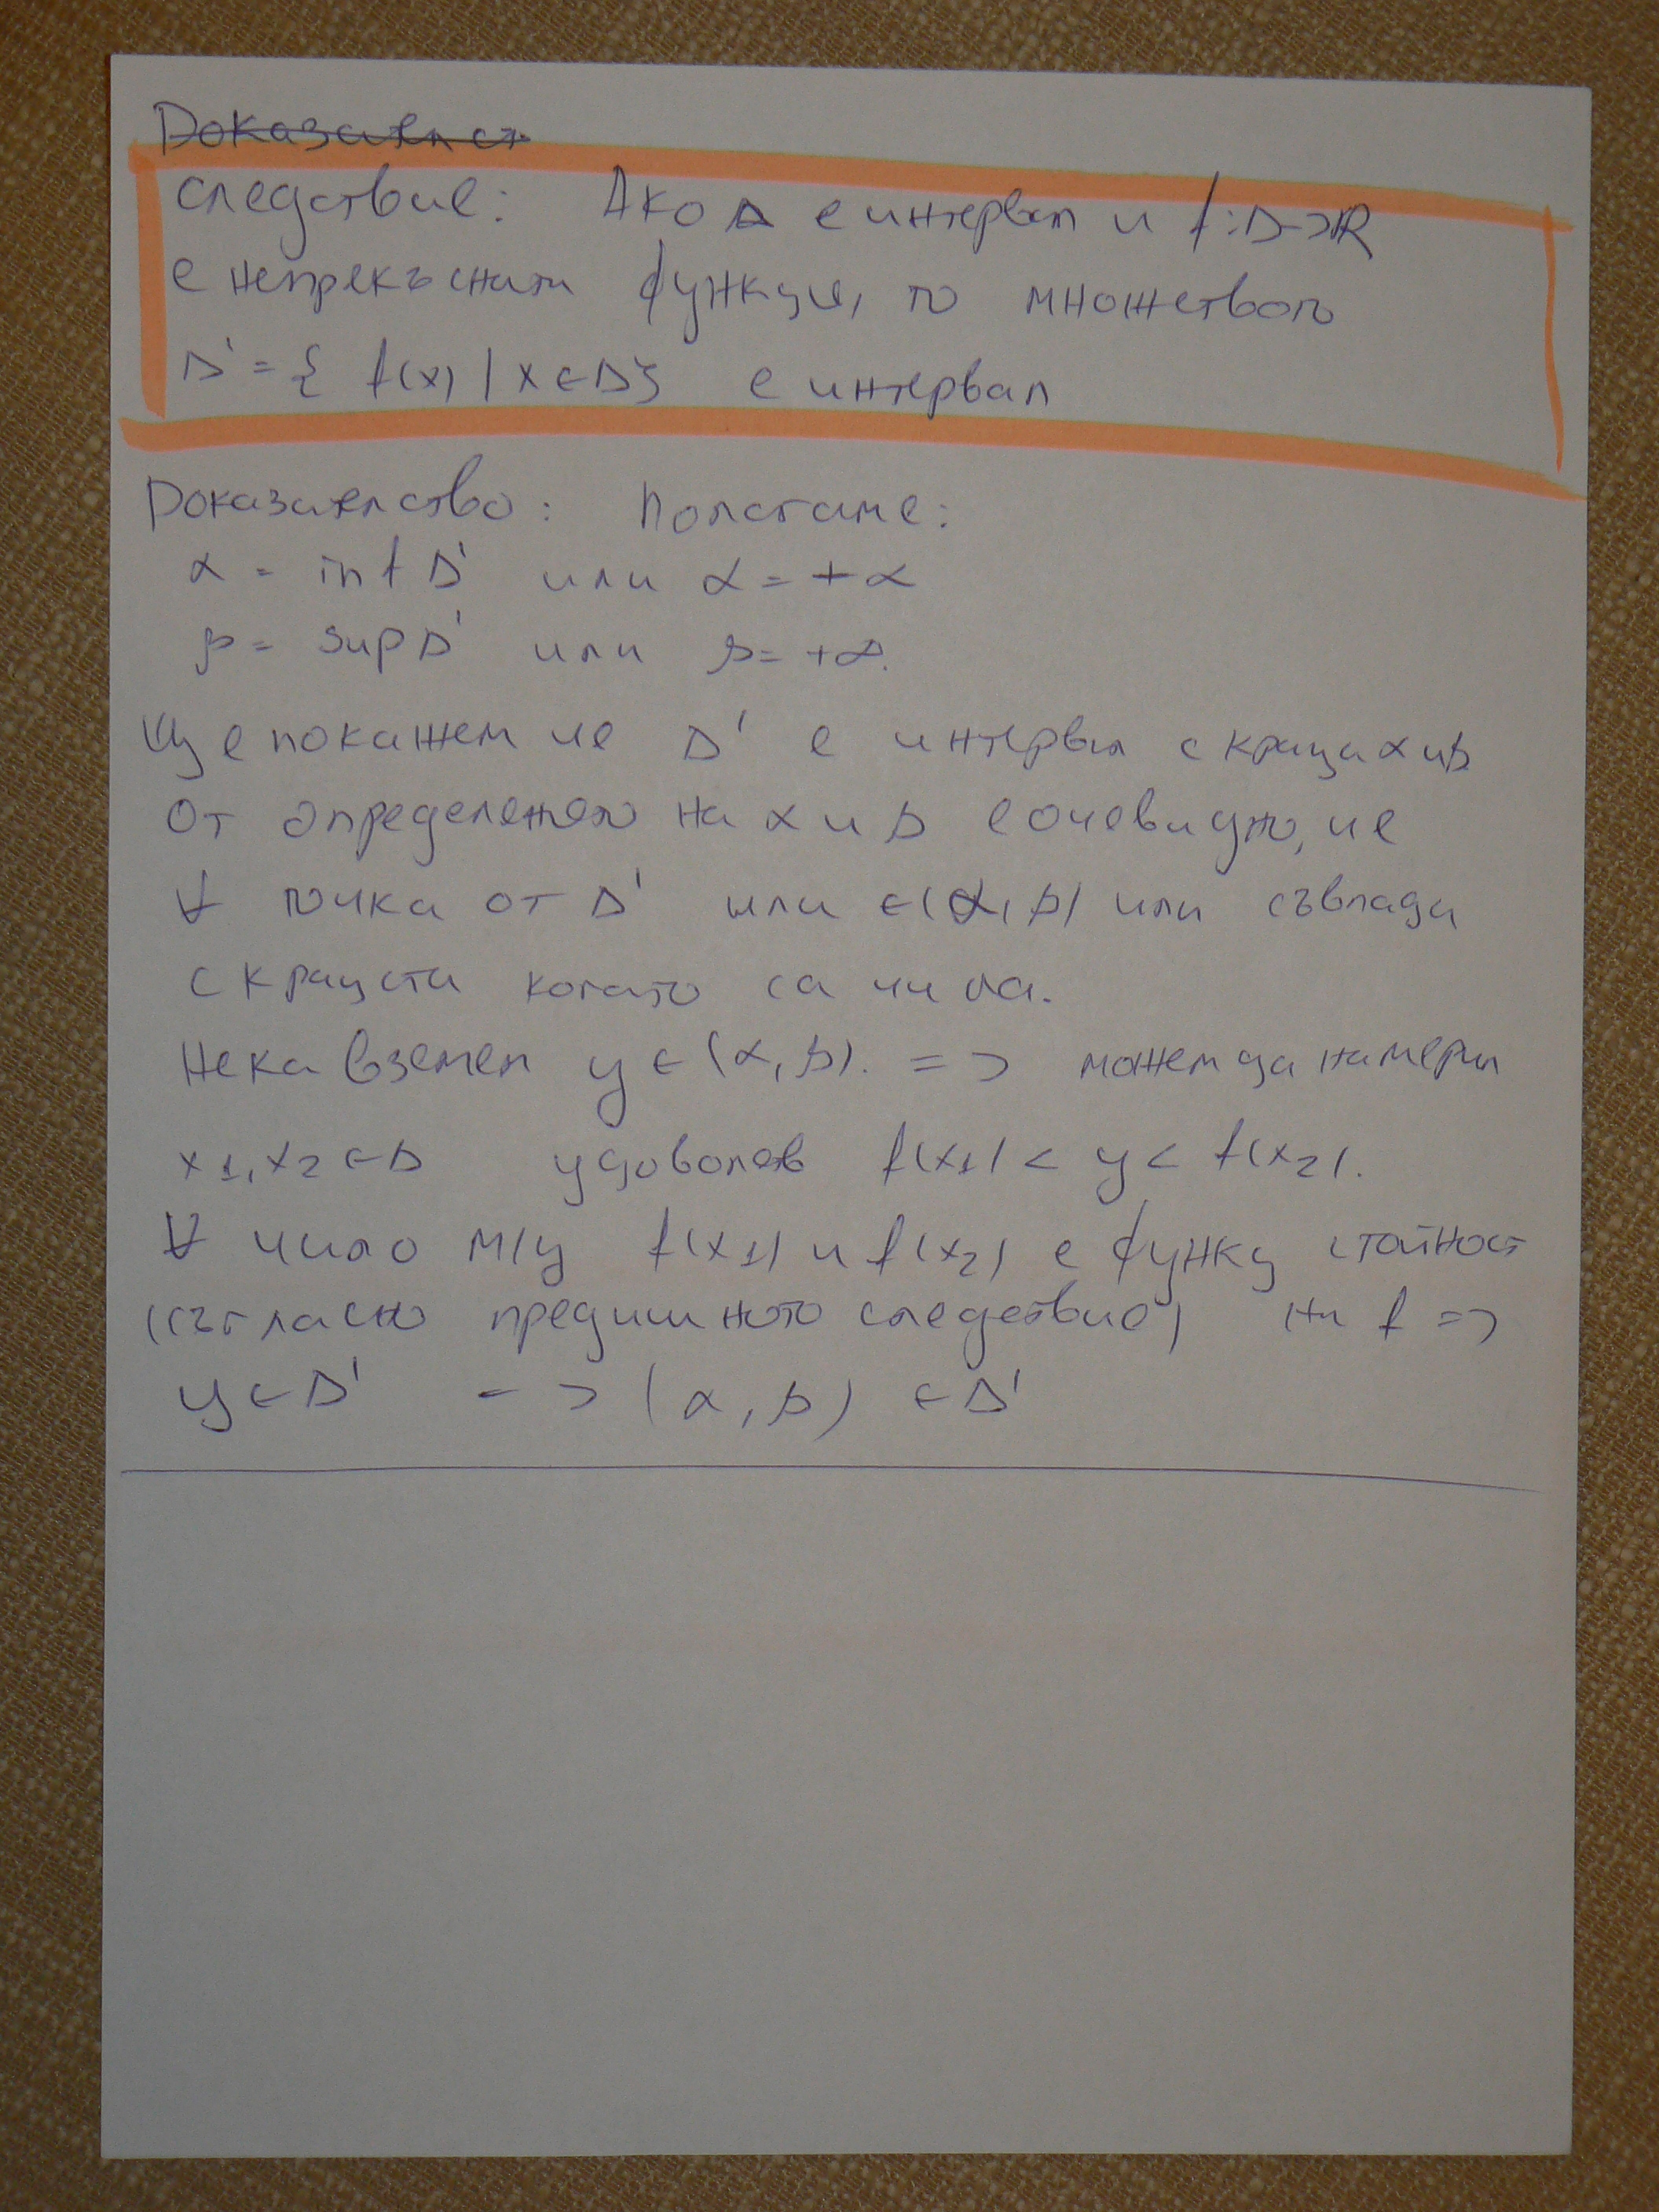 Доказателст
следствие: Ако Δ е интервал и f:Δ->R
е непрекъсната функция, то множеството
Δ' = { f(x) | x ∈ Δ} е интервал
Доказателство: Полагаме:
α = inf Δ' или α = +∞
β = sup Δ' или β = +∞.
Ще покажем че Δ' е интервал с краища α и β
От определението на α и β е очевидно, че
∀ точка от Δ' или ∈ (α, β) или съвпада
с краищата когато са числа.
Нека вземем y ∈ (α, β). => можем да намерим
x1, x2 ∈ Δ удовлетв f(x1) < y < f(x2).
∀ число м/у f(x1) и f(x2) е функц стойност
(съгласно предишното следствие) на f =>
y ∈ Δ' => (α, β) ∈ Δ'